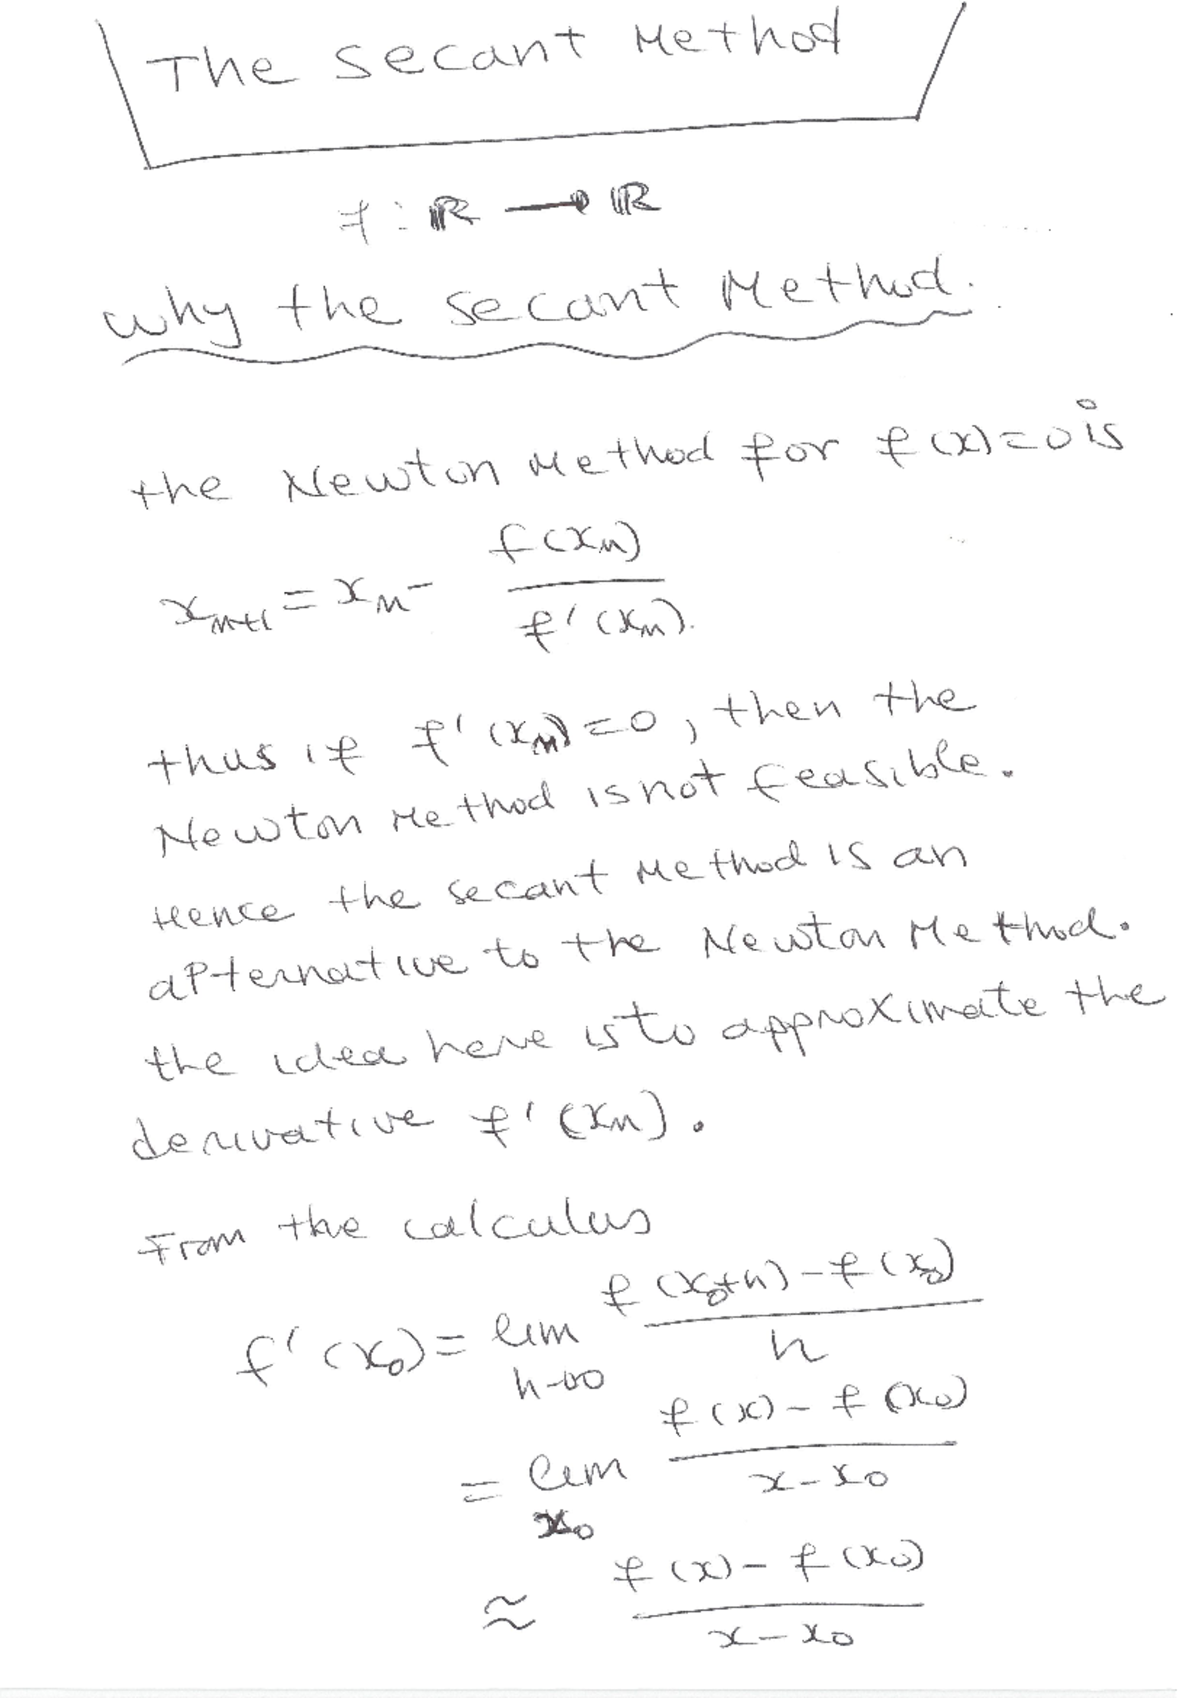 The Secant Method
f : ℝ → ℝ
Why the Secant Method.
the Newton Method for f(x)=0 is
x_{n+1} = x_n - f(x_n) / f'(x_n).
thus if f'(x_n)=0, then the
Newton Method is not feasible.
Hence the secant Method is an
alternative to the Newton Method.
the idea here is to approximate the
derivative f'(x_n).
From the calculus
f'(x_0) = lim_{h→0} (f(x_0+h) - f(x_0)) / h
= lim_{x_0} (f(x) - f(x_0)) / (x - x_0)
≈ (f(x) - f(x_0)) / (x - x_0)